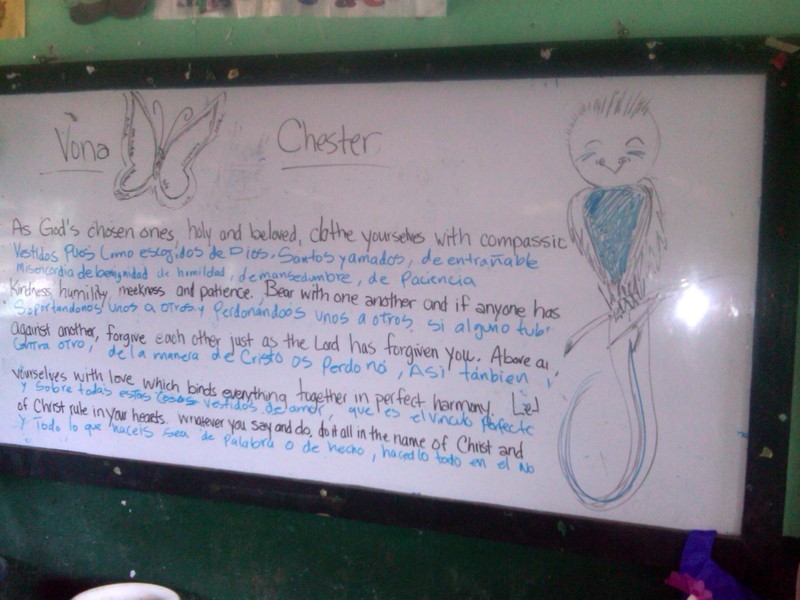 Vona
Chester
As God's chosen ones, holy and beloved, clothe yourselves with compassic
Vestidos Pues Como escogidos de Dios, Santos y amados, de entrañable
Misericordia de benignidad de humildad, de mansedumbre, de Paciencia
Kindness, humility, meekness and patience. Bear with one another and if anyone has
Soportandonos unos a otros y Perdonandoos unos a otros si alguno tub
against another, forgive each other just as the Lord has forgiven you. Above al
Contra otro, de la manera de Cristo os Perdonó, Asi tanbien
yourselves with love which binds everything together in perfect harmony. Let
y sobre todas estas cosas vestidos de amor, que es el vinculo Perfecte
of Christ rule in your hearts. Whatever you say and do, do it all in the name of Christ and
y Todo lo que haceis sea de Palabra o de hecho, hacedlo todo en el No